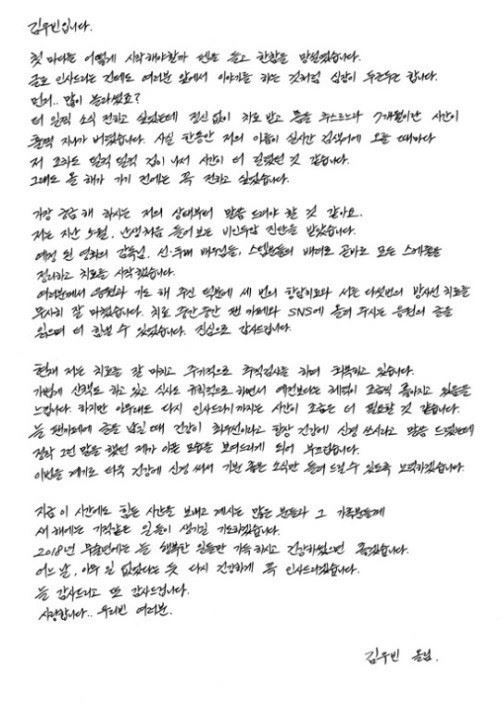 김우빈입니다.
첫 마디를 어떻게 시작해야할까 펜을 들고 한참을 망설였습니다.
글로 인사드리는 건데도 여러분 앞에서 이야기를 하는 것처럼 심장이 두근두근 합니다.
먼저.. 많이 놀라셨죠?
더 일찍 소식 전하고 싶었는데 정신 없이 치료 받고 몸을 추스르느라 7개월이란 시간이
훌쩍 지나가 버렸습니다. 사실 한동안 저의 이름이 실시간 검색어에 오를 때마다
저 조차도 덜컥 덜컥 겁이 나서 시간이 더 길었던 것 같습니다.
그래도 올 해가 가기 전에는 꼭 전하고 싶었습니다.
가장 궁금해 하시는 저의 상태부터 말씀 드려야 할 것 같아요.
저는 지난 5월, 난생처음 들어보는 비인두암 진단을 받았습니다.
예정 된 영화의 감독님, 선·후배 배우님들, 스탭분들의 배려로 곧바로 모든 스케줄을
정리하고 치료를 시작했습니다.
여러분께서 응원과 기도 해 주신 덕분에 세 번의 항암치료와 서른 다섯번의 방사선 치료를
무사히 잘 마쳤습니다. 치료 중간중간 팬 카페와 SNS에 올려 주시는 응원의 글을
읽으며 더 힘낼 수 있었습니다. 진심으로 감사드립니다.
현재 저는 치료를 잘 마치고 주기적으로 추적검사를 하며 회복하고 있습니다.
가볍게 산책도 하고 있고 식사도 규칙적으로 하면서 예전보다는 체력이 조금씩 좋아지고 있음을
느낍니다. 하지만 아무래도 다시 인사드리기까지는 시간이 조금은 더 필요할 것 같습니다.
늘 팬카페에 글을 남길 때 건강이 최우선이라고 항상 건강에 신경 쓰시라고 말씀 드렸는데
정작 그런 말을 했던 제가 아픈 모습을 보여드리게 되어 부끄럽습니다.
이번을 계기로 더욱 건강에 신경 써서 기쁨 좋은 소식만 들려 드릴 수 있도록 노력하겠습니다.
지금 이 시간에도 힘든 시간을 보내고 계시는 많은 분들과 그 가족분들께
새 해에는 기적같은 일들이 생기길 기도하겠습니다.
2018년 무술년에는 늘 행복한 일들만 가득 하시고 건강하셨으면 좋겠습니다.
어느 날, 아무 일 없었다는 듯 다시 건강하게 꼭 인사드리겠습니다.
늘 감사드리고 또 감사드립니다.
사랑합니다.. 우리빈 여러분.
김우빈 올림.